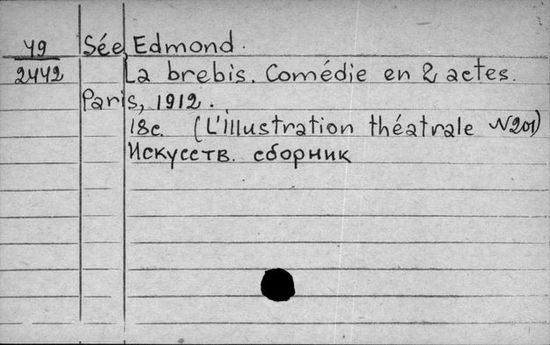 49 Sée, Edmond.
2442 La brebis. Comédie en 2 actes.
Paris, 1912.
18c. (L'Illustration théatrale N201)
Искусств. сборник